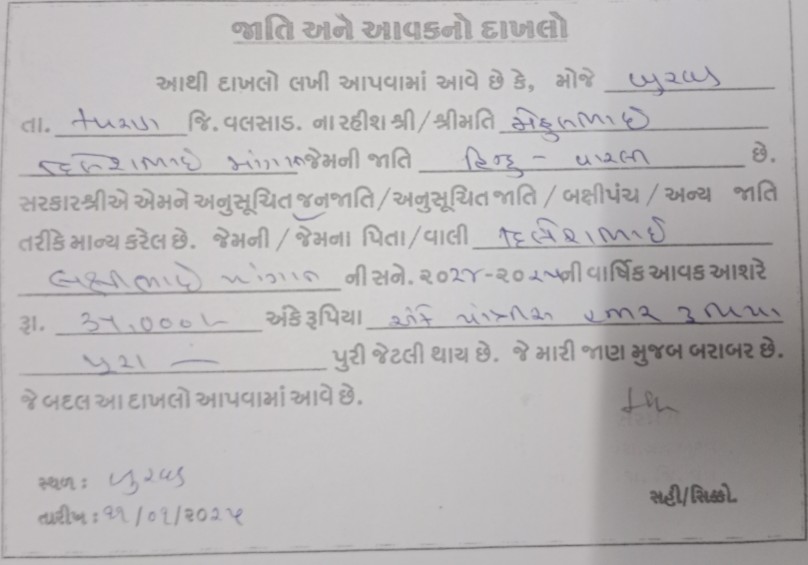 જાતિ અને આવકનો દાખલો
આથી દાખલો લખી આપવામાં આવે છે કે, મોજે ખુરવડ
તા. જિ. વલસાડ. ના રહીશ શ્રી/શ્રીમતિ મેહુલભાઈ
જેમની જાતિ હિન્દુ - વારલી છે.
સરકારશ્રીએ એમને અનુસૂચિત જનજાતિ/અનુસૂચિત જાતિ / બક્ષીપંચ / અન્ય જાતિ
તરીકે માન્ય કરેલ છે. જેમની / જેમના પિતા/વાલી
ની સને. ૨૦૨૪-૨૦૨૫ની વાર્ષિક આવક આશરે
રૂા. ૩૫,૦૦૦/- અંકે રૂપિયા અંકે પાંત્રીસ હજાર રૂપિયા
પુરા પુરી જેટલી થાય છે. જે મારી જાણ મુજબ બરાબર છે.
જે બદલ આ દાખલો આપવામાં આવે છે.
સ્થળ: ખુરવડ
તારીખ: /૦૧/૨૦૨૫
સહી/સિક્કો